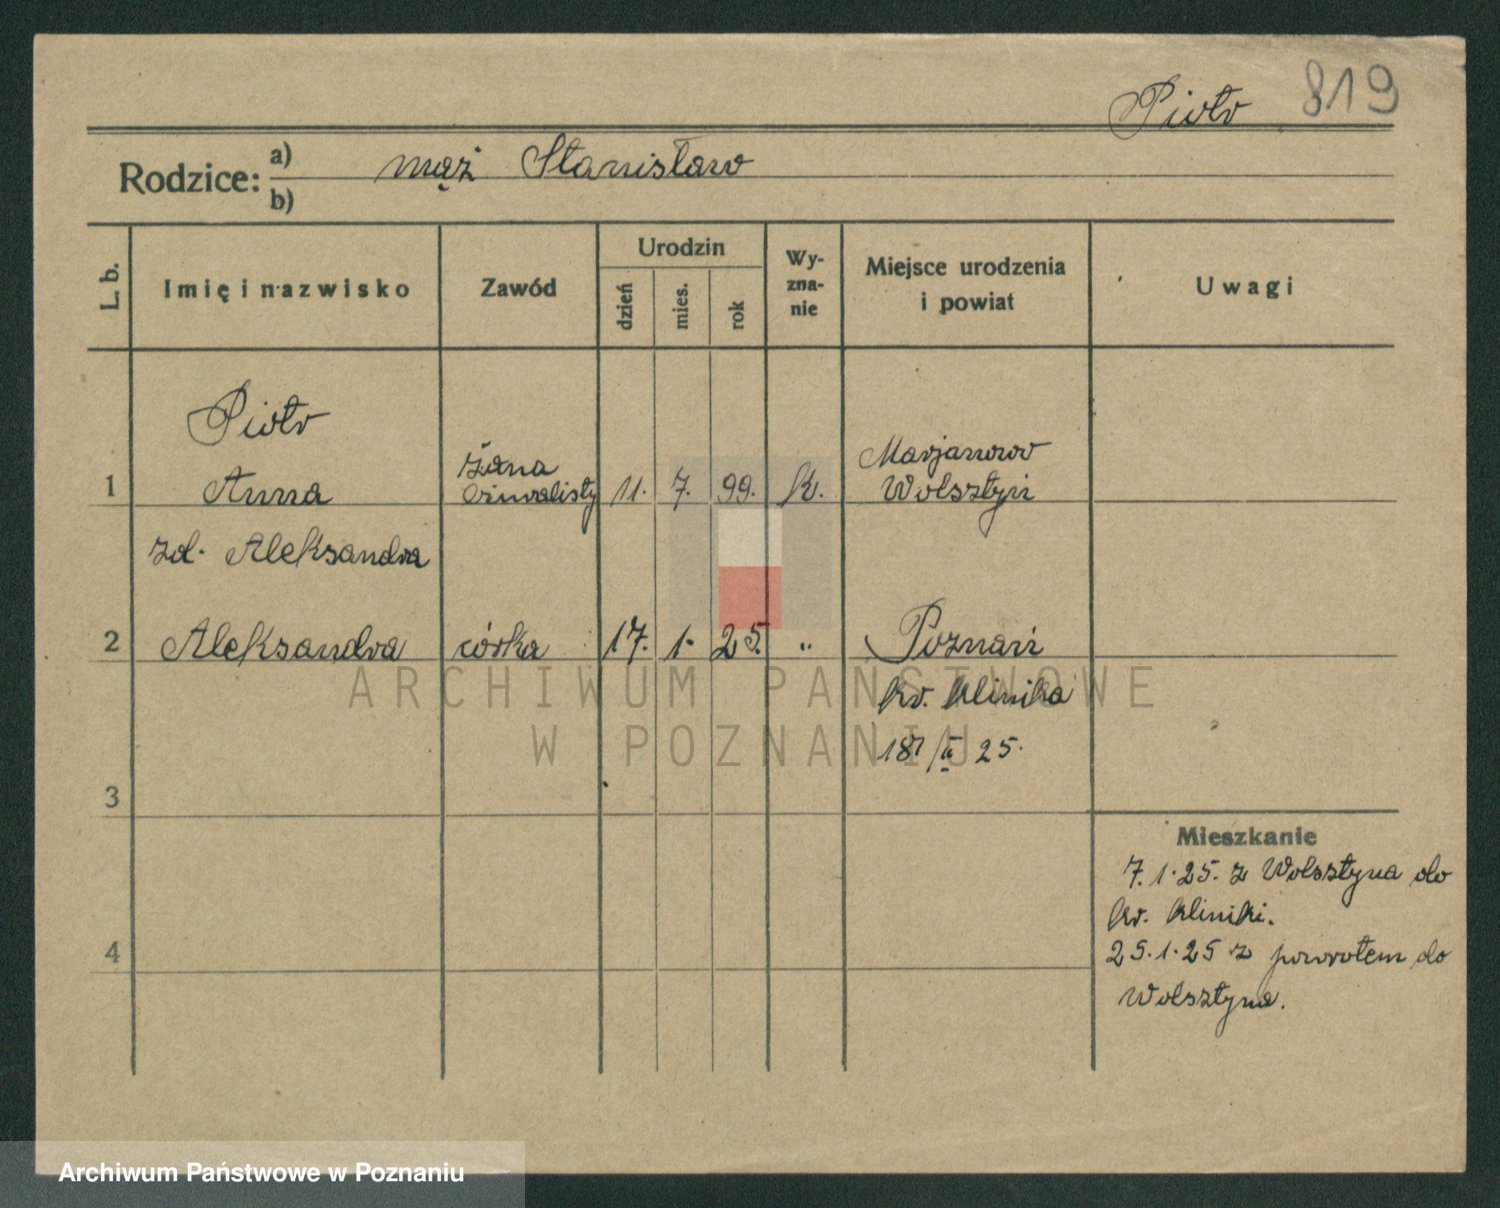 Piotr 819
Rodzice: a) mąż Stanisław
b)
L. b. Imię i nazwisko Zawód Urodzin dzień mies. rok Wyznanie Miejsce urodzenia i powiat Uwagi
Piotr
żona Marjanowo
1 Anna inwalisty 11. 7. 99. k. Wolsztyń
zd. Aleksandra
2 Aleksandra córka 17. 1. 25. " Poznań
kr. klinika
18/II 25.
3
Mieszkanie
7.1.25. z Wolsztyna do
kr. kliniki.
4
25.1.25 z powrotem do
Wolsztyna.
ARCHIWUM PAŃSTWOWE
W POZNANIU
Archiwum Państwowe w Poznaniu